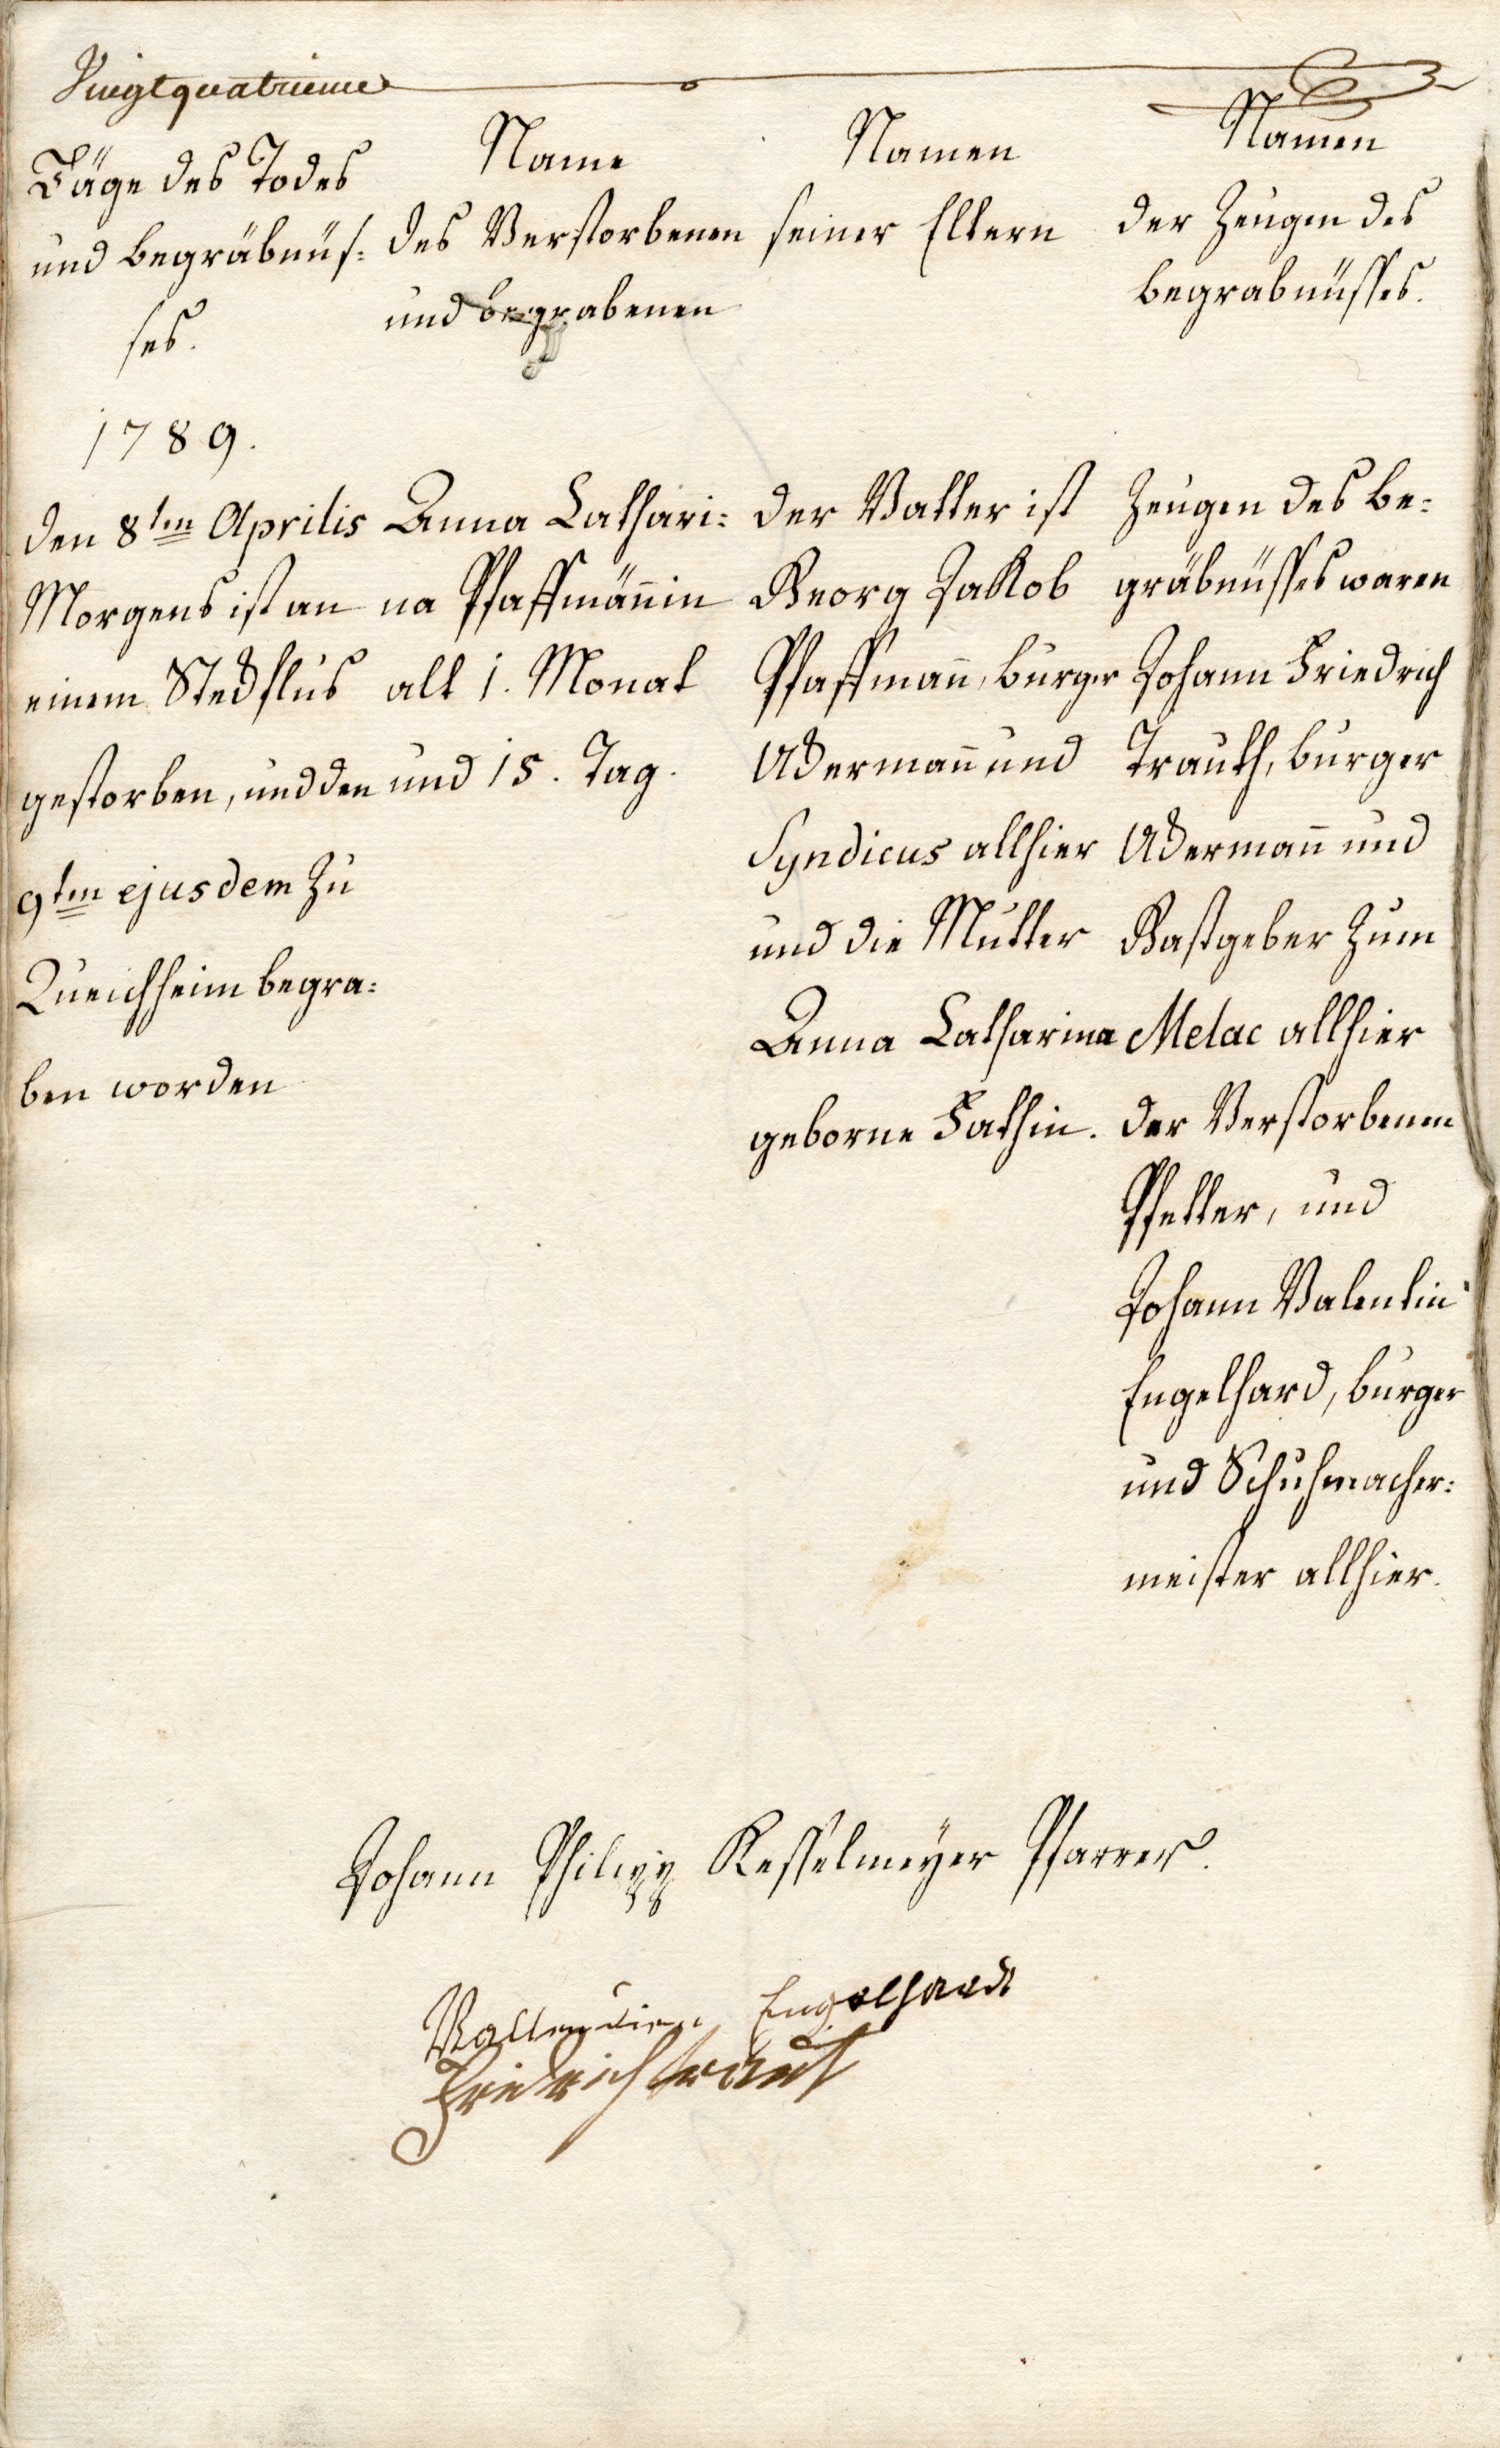 Vingtquatrieme
Täge des Todes
und begräbnüs=
ses.
Name
des Verstorbenen
und begrabenen
Namen
seiner Eltern
Namen
der Zeugen des
begrabnüsses.
1789.
den 8ten Aprilis
Morgens ist an
einem Steckflus
gestorben, und den
9ten ejusdem zu
Queichheim begra=
ben worden
Anna Cathari=
na Pfaffmän̄in
alt 1. Monat
und 15. Tag.
der Vatter ist
Georg Jakob
Pfaffman̄, burger
Ackerman̄ und
Syndicus allhier
und die Mutter
Anna Catharina
geborne Fathin.
Zeugen des be=
gräbnüsses waren
Johann Friedrich
Trauth, burger
Ackerman̄ und
Gastgeber zum
Melac allhier
der Verstorbenen
Pfetter, und
Johann Valentin
Engelhard, burger
und Schuhmacher=
meister allhier.
Johann Philipp Kesselmeÿer Pfarrer.
Vallendien Engelhardt
Fridrich traut